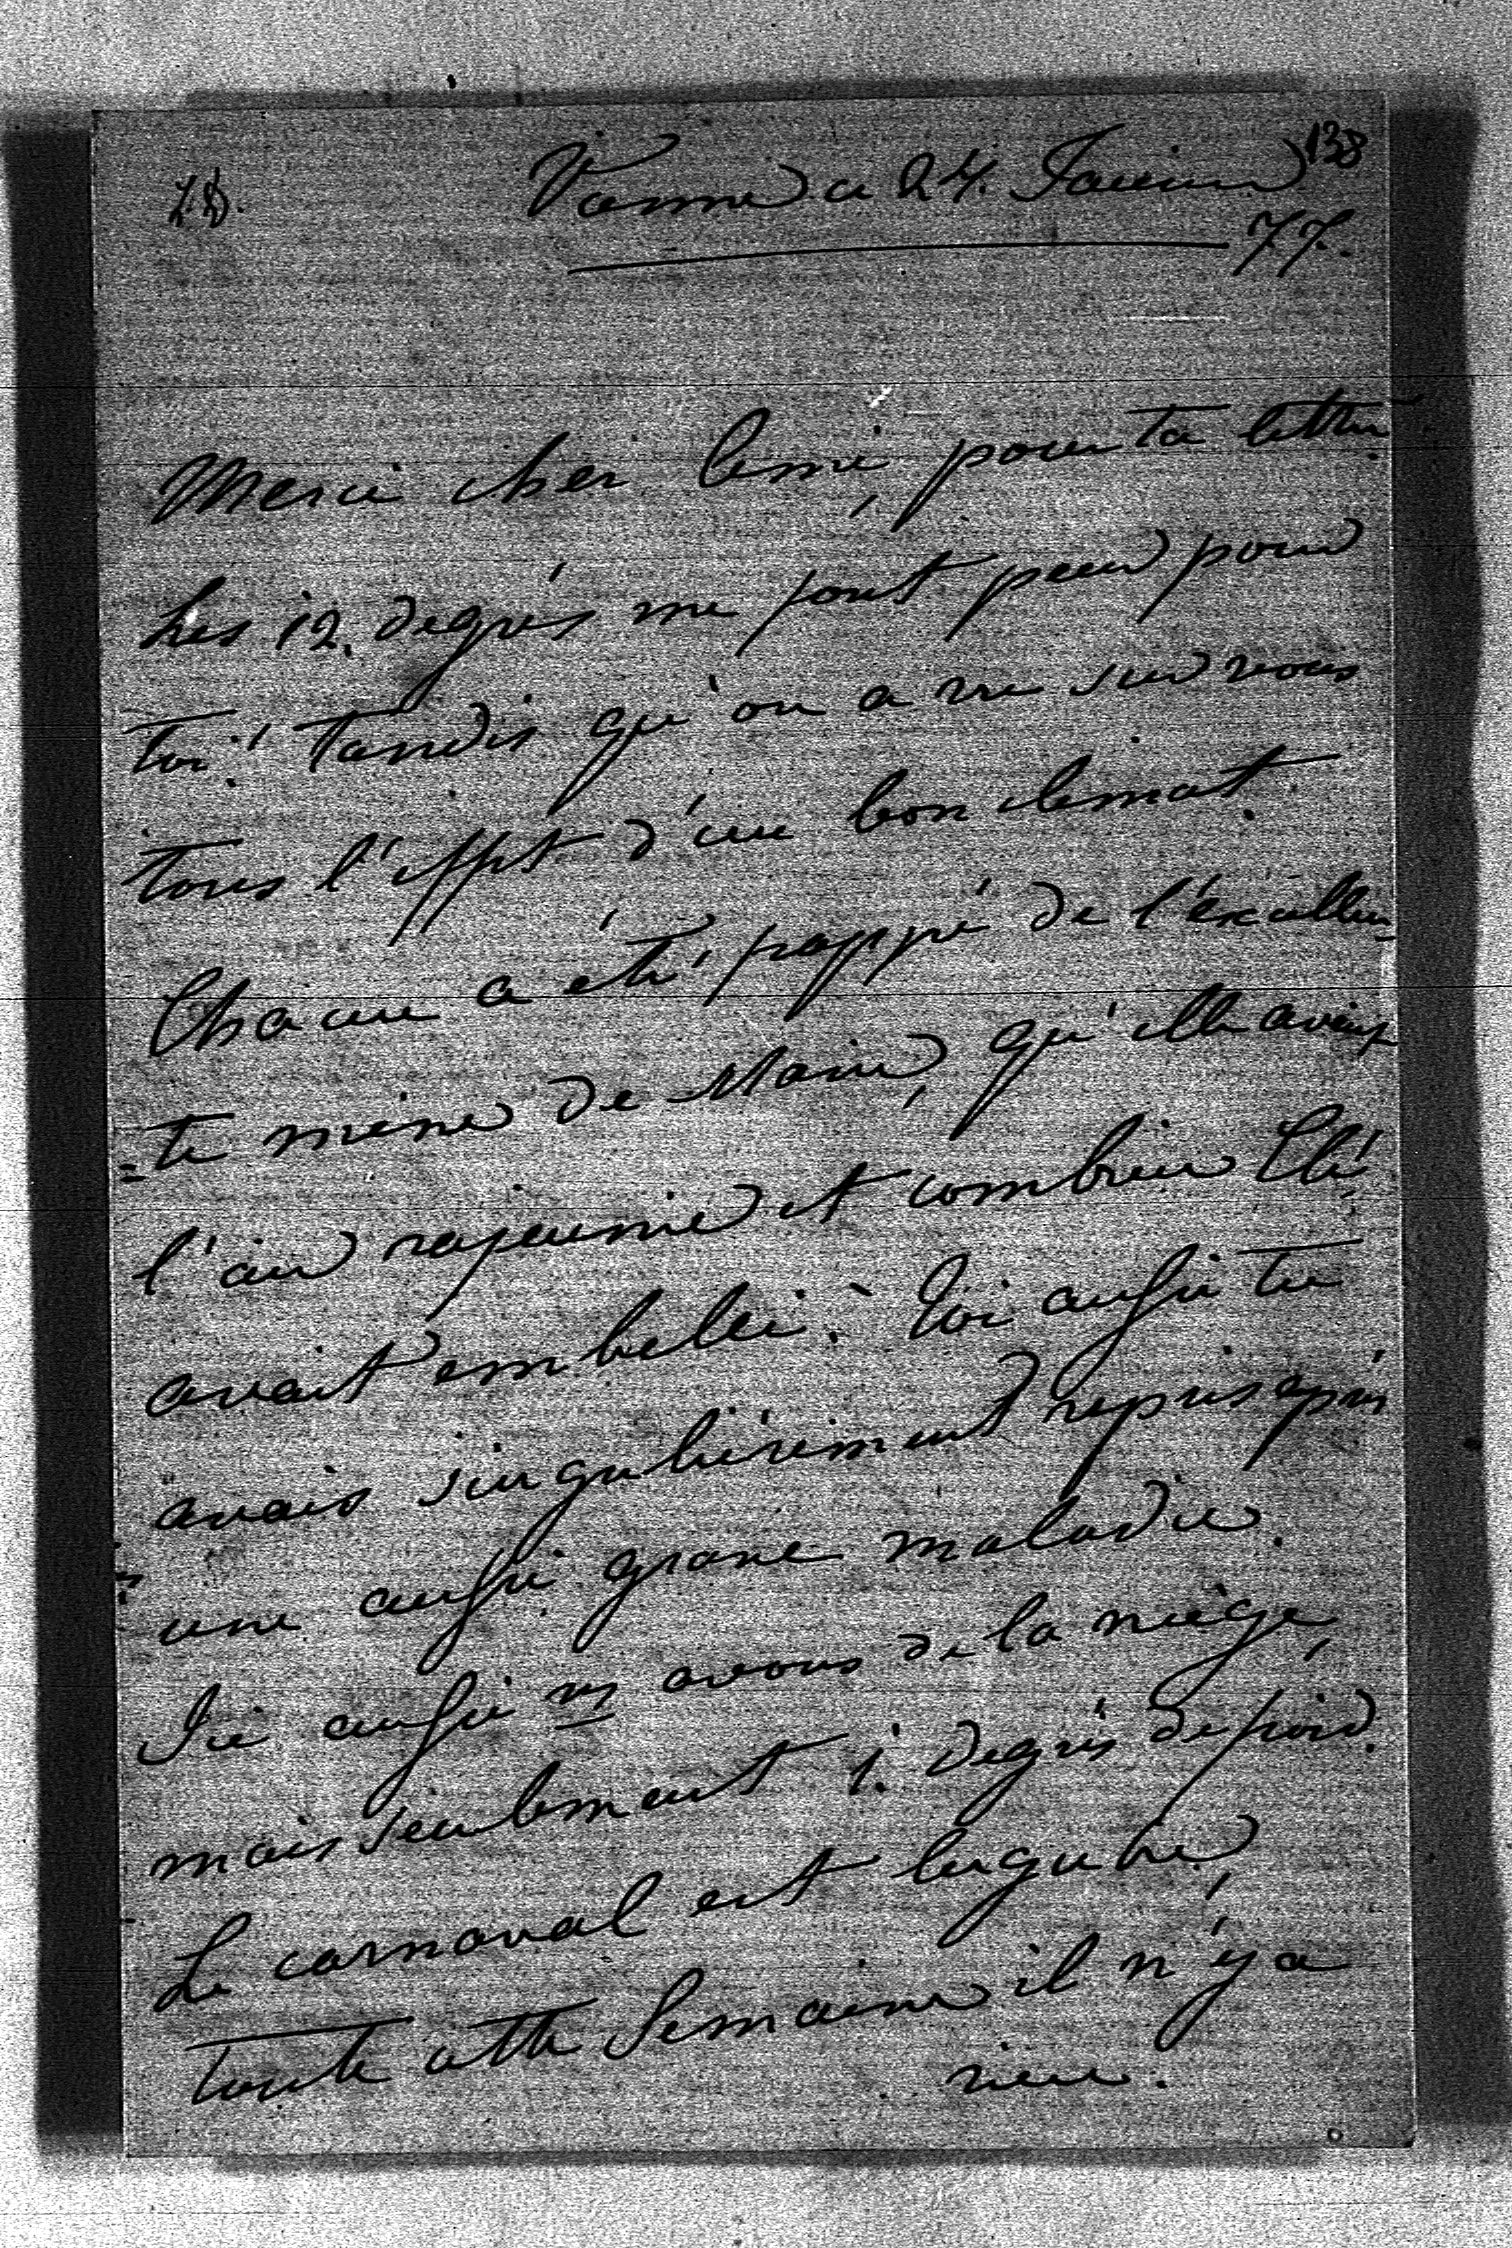 138
Z.D. Vienne ce 24. Janvier
77.
Merci cher ami, pour ta lettre.
Les 12. degrés me font peur pour
toi! Tandis qu'on a vu sur vous
tous l'effet d'un bon climat.
Chacun a été frappé de l'excellen-
-te mine de Marie, qu'elle avait
l'air rajeunie et combien Clé
avait embelli. Toi aussi tu
avais singulièrement repris après
une aussi grave maladie.
Ici aussi ns avons de la neige,
mais seulement 1. degrés de froid.
Le carnaval est lugubre,
toute cette Semaine il n'y a
rien.